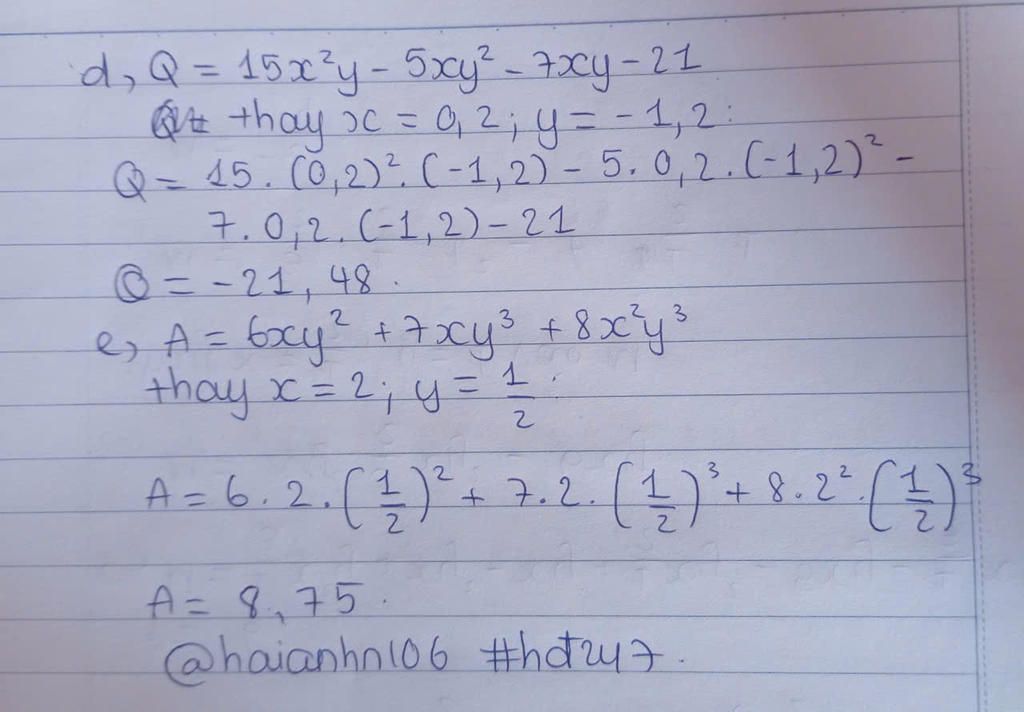 d, Q = 15x²y - 5xy² - 7xy - 21
thay x = 0,2; y = -1,2:
Q = 15.(0,2)².(-1,2) - 5.0,2.(-1,2)² -
7.0,2.(-1,2) - 21
Q = -21,48.
e, A = 6xy² + 7xy³ + 8x²y³
thay x = 2; y = 1/2.
A = 6.2.(1/2)² + 7.2.(1/2)³ + 8.2².(1/2)³
A = 8,75.
@haianhn106 #hđ247.